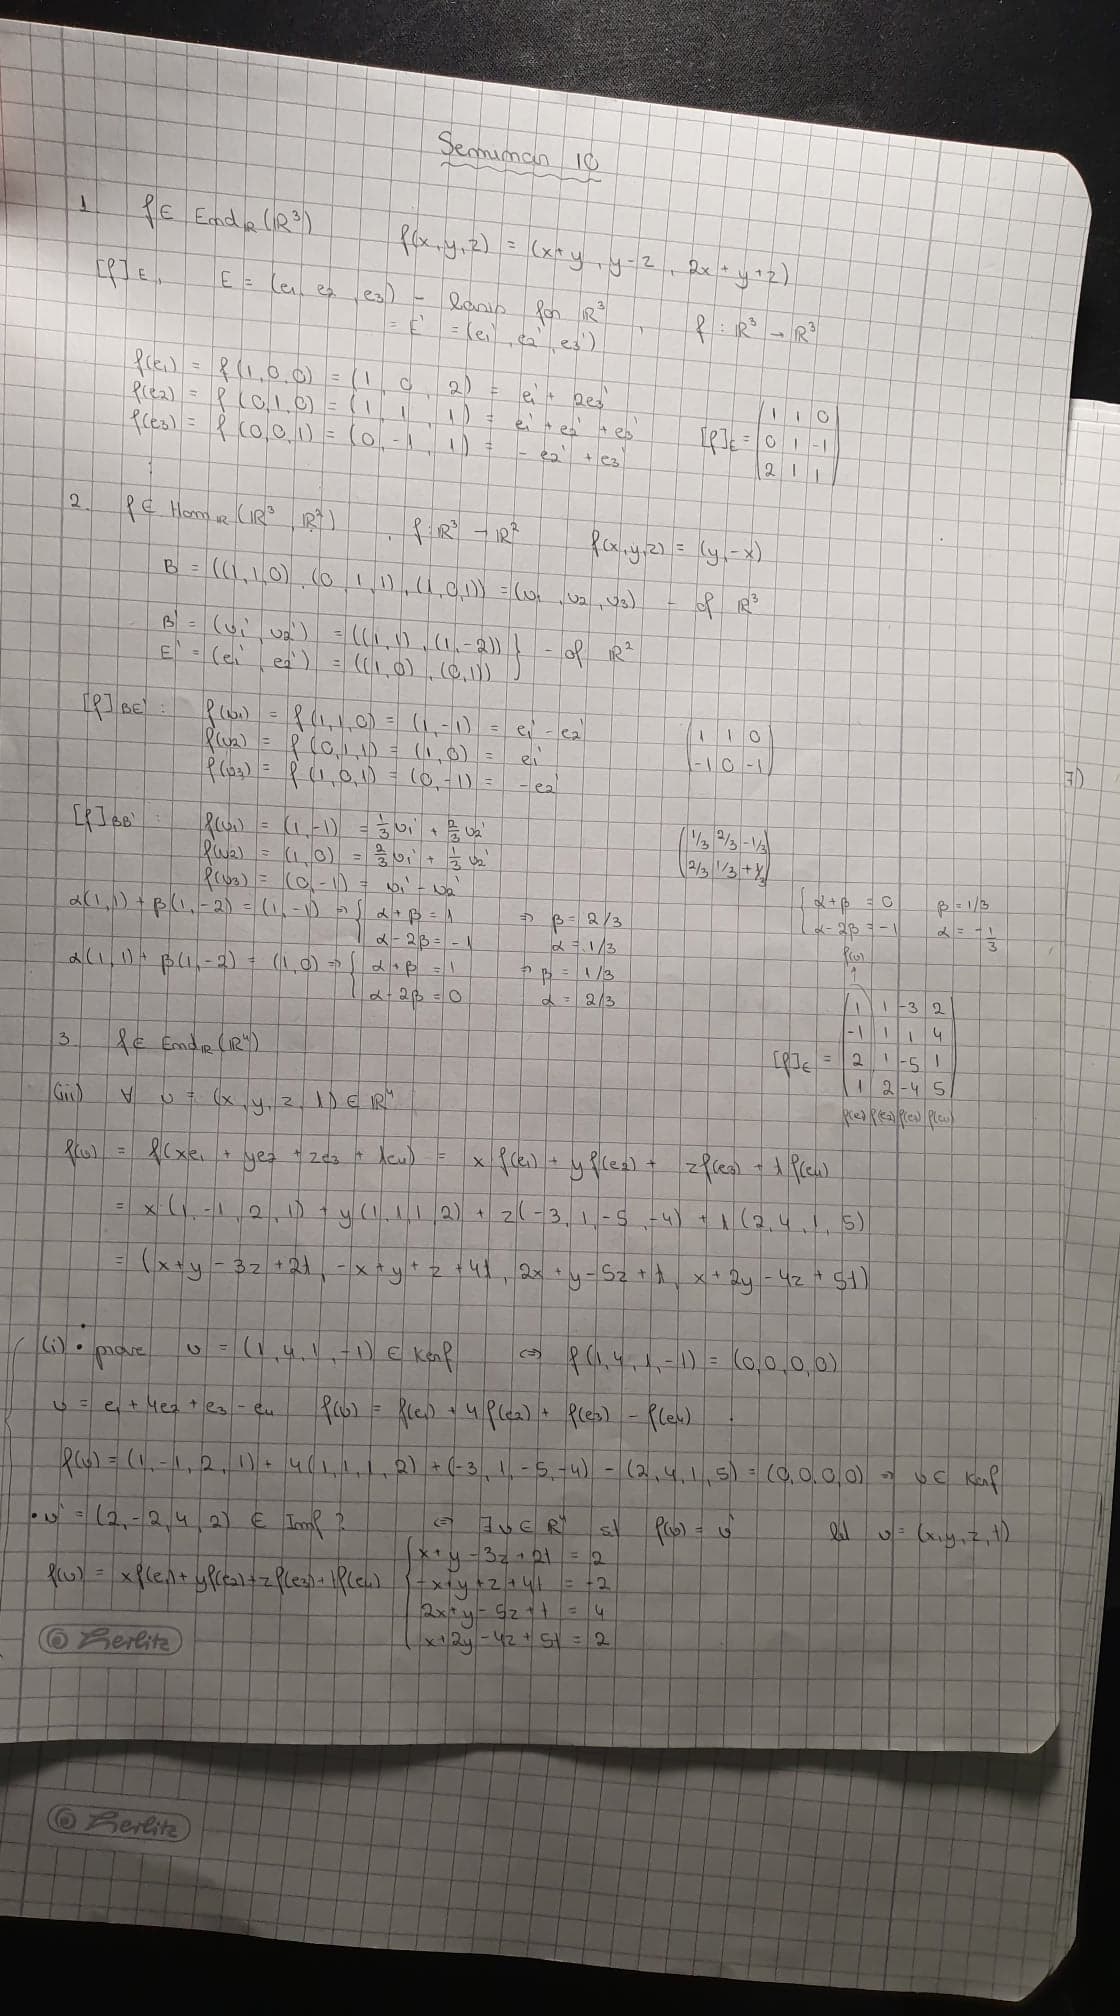 Seminar 10
1. f ∈ End_R(R³) f(x,y,z) = (x+y, y-z, 2x+y+z)
[f]_E, E = (e1, e2, e3) - basis for R³, f: R³ → R³
= E' = (e1', e2', e3')
f(e1) = f(1,0,0) = (1, 0, 2) = e1' + 2e3'
f(e2) = f(0,1,0) = (1, 1, 1) = e1' + e2' + e3'
f(e3) = f(0,0,1) = (0, -1, 1) = -e2' + e3'
[f]_E = (1 1 0
0 1 -1
2 1 1)
2. f ∈ Hom_R(R³, R²), f: R³ → R² f(x,y,z) = (y,-x)
B = ((1,1,0), (0,1,1), (1,0,1)) = (v1, v2, v3) - of R³
B' = (v1', v2') = ((1,1), (1,-2)) } - of R²
E' = (e1', e2') = ((1,0), (0,1))
[f]BE': f(v1) = f(1,1,0) = (1,-1) = e1' - e2'
f(v2) = f(0,1,1) = (1,0) = e1'
f(v3) = f(1,0,1) = (0,-1) = -e2'
(1 1 0
-1 0 -1)
[f]BB': f(v1) = (1,-1) = 1/3 v1' + 2/3 v2'
f(v2) = (1,0) = 2/3 v1' + 1/3 v2'
f(v3) = (0,-1) = v1' - v2'
(1/3 2/3 -1/3
2/3 1/3 +1/3)
α(1,1) + β(1,-2) = (1,-1) ⇒ { α+β = 1 ⇒ β = 2/3
α-2β = -1 α = 1/3
α(1,1) + β(1,-2) = (1,0) ⇒ { α+β = 1 ⇒ β = 1/3
α-2β = 0 α = 2/3
{ α+β = 0 β = 1/3
α-2β = -1 α = -1/3
3. f ∈ End_R(R⁴)
f(v)
↑
[f]_E = (1 1 -3 2
-1 1 1 4
2 1 -5 1
1 2 -4 5)
f(e1) f(e2) f(e3) f(e4)
(iii) ∀ v = (x, y, z, t) ∈ R⁴
f(v) = f(xe1 + ye2 + ze3 + te4) = x f(e1) + y f(e2) + z f(e3) + t f(e4)
= x(1, -1, 2, 1) + y(1, 1, 1, 2) + z(-3, 1, -5, -4) + t(2, 4, 1, 5)
= (x+y-3z+2t, -x+y+z+4t, 2x+y-5z+t, x+2y-4z+5t)
(i) • prove v = (1, 4, 1, -1) ∈ Ker f ⇔ f(1,4,1,-1) = (0,0,0,0)
v = e1 + 4e2 + e3 - e4 f(v) = f(e1) + 4f(e2) + f(e3) - f(e4)
f(v) = (1,-1,2,1) + 4(1,1,1,2) + (-3,1,-5,-4) - (2,4,1,5) = (0,0,0,0) ⇒ v ∈ Ker f
• v' = (2,-2,4,2) ∈ Im f ? ⇔ ∃ v ∈ R⁴ st f(v) = v' let v = (x,y,z,t)
f(v) = xf(e1) + yf(e2) + zf(e3) + tf(e4) { x+y-3z+2t = 2
-x+y+z+4t = -2
2x+y-5z+t = 4
x+2y-4z+5t = 2
Herlitz
Herlitz
7)